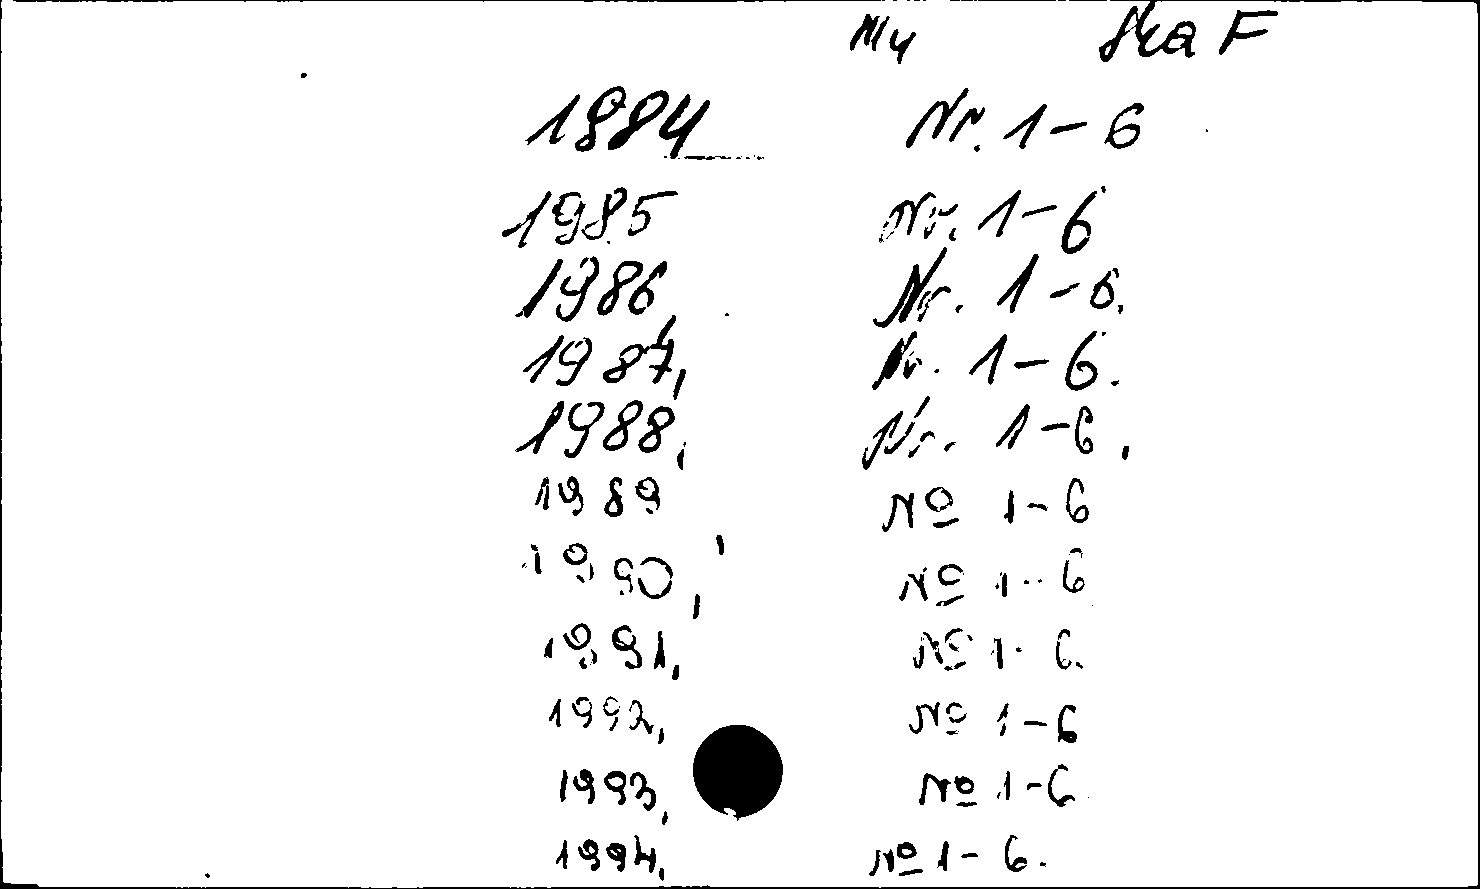 1984 Nr. 1-6
1985 Nr. 1-6
1986, Nr. 1-6.
1987, Nr. 1-6.
1988, Nr. 1-6.
1989 № 1-6
1990, № 1-6
1991, № 1-6.
1992, № 1-6
1993, № 1-6
1994, № 1-6.